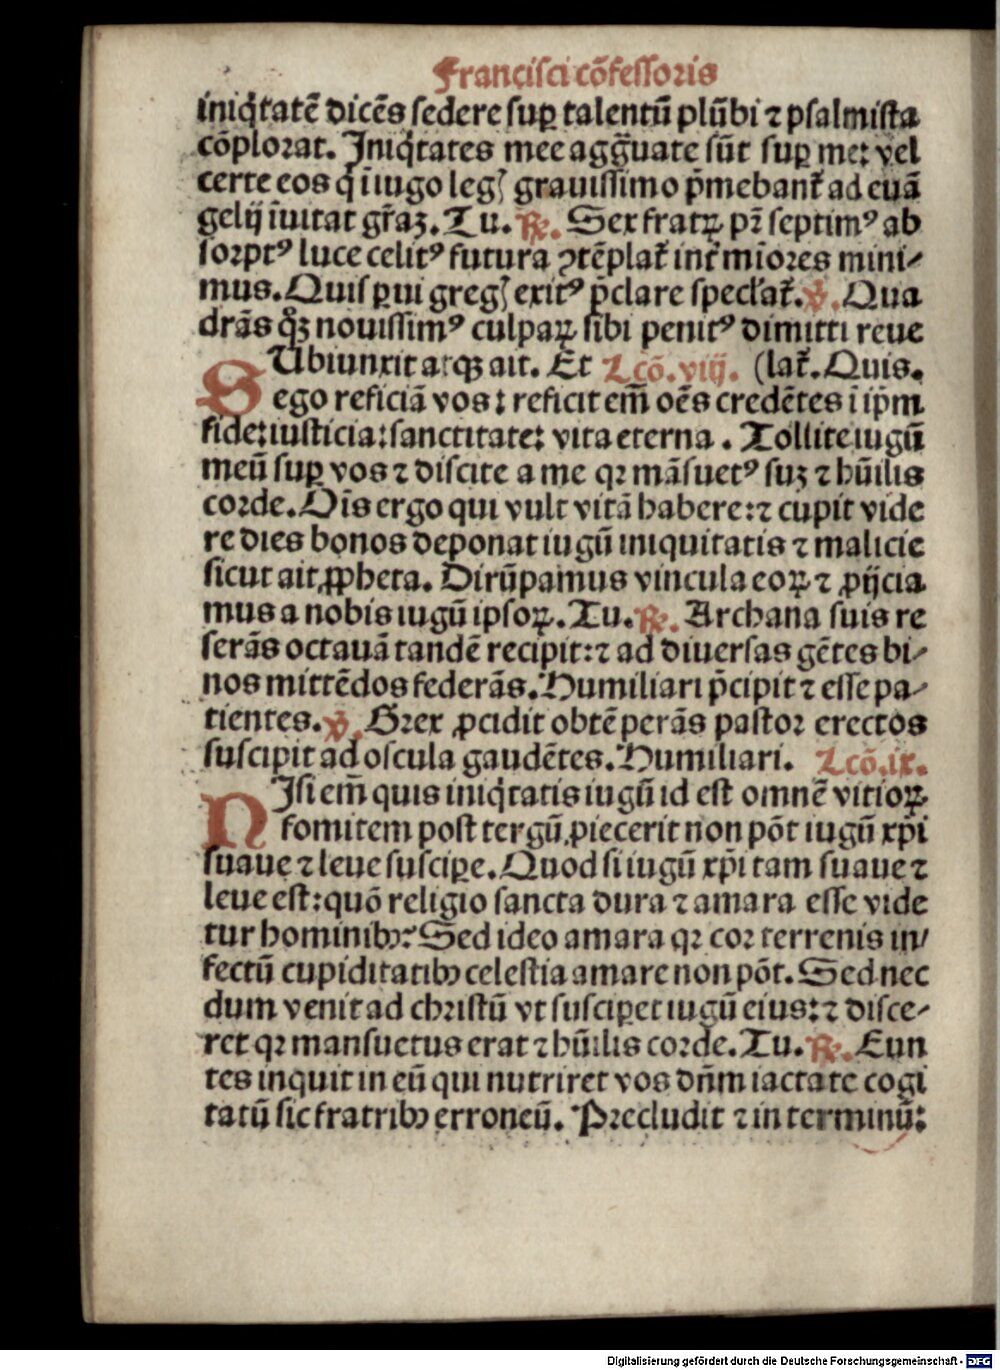 Francisci cōfessoris
iniq̇tatē dicēs sedere suꝑ talentū plūbi ⁊ psalmista
cōplorat. Iniq̇tates mee agg̃uate sūt suꝑ me: vel
certe eos q̇ ī iugo leg̃ grauissimo p̄mebant̃ ad euā
gelij īuitat gr̄aʒ. Tu. ℟. Sex fratꝝ pr̄ septimꝰ ab
sorptꝰ luce celitꝰ futura ꝯtēplat̃ int̃ miōres mini-
mus. Quis ꝑui greg̃ exitꝰ p̄clare spect̃at̃. ℣. Qua
drās qꝫ nouissimꝰ culpaꝝ sibi penitꝰ dimitti reue
SUbiunxit atqꝫ ait. Et Lcō. viij. (lat̃. Quis.
ego reficiā vos: reficit em̄ oēs credētes ī ip̄m
fide: iusticia: sanctitate: vita eterna. Tollite iugū
meū suꝑ vos ⁊ discite a me qꝛ māsuetꝰ suꝫ ⁊ hūilis
corde. Oīs ergo qui vult vitā habere: ⁊ cupit vide
re dies bonos deponat iugū iniquitatis ⁊ malicie
sicut ait ꝓpheta. Dirūpamus vincula eoꝝ ⁊ ꝓijcia
mus a nobis iugū ipsoꝝ. Tu. ℟. Archana suis re
serās octauā tandē recipit: ⁊ ad diuersas gētes bi-
nos mittēdos federās. Humiliari p̄cipit ⁊ esse pa-
tientes. ℣. Grex ꝓcidit obtēperās pastor erectos
suscipit ad oscula gaudētes. Humiliari. Lcō. ix.
NIsi em̄ quis iniq̇tatis iugū id est omnē vitioꝝ
fomitem post tergū ꝓiecerit non pōt iugū xp̄i
suaue ⁊ leue suscipe. Quod si iugū xp̄i tam suaue ⁊
leue est: quō religio sancta dura ⁊ amara esse vide
tur hominibꝫ? Sed ideo amara qꝛ cor terrenis in-
fectū cupiditatibꝫ celestia amare non pōt. Sed nec
dum venit ad christū vt susciꝑet iugū eius: ⁊ disce-
ret qꝛ mansuetus erat ⁊ hūilis corde. Tu. ℟. Eun
tes inquit in eū qui nutriret vos dn̄m iactate cogi
tatū sic fratribꝫ erroneū. Precludit ⁊ in terminū:
Digitalisierung gefördert durch die Deutsche Forschungsgemeinschaft - DFG